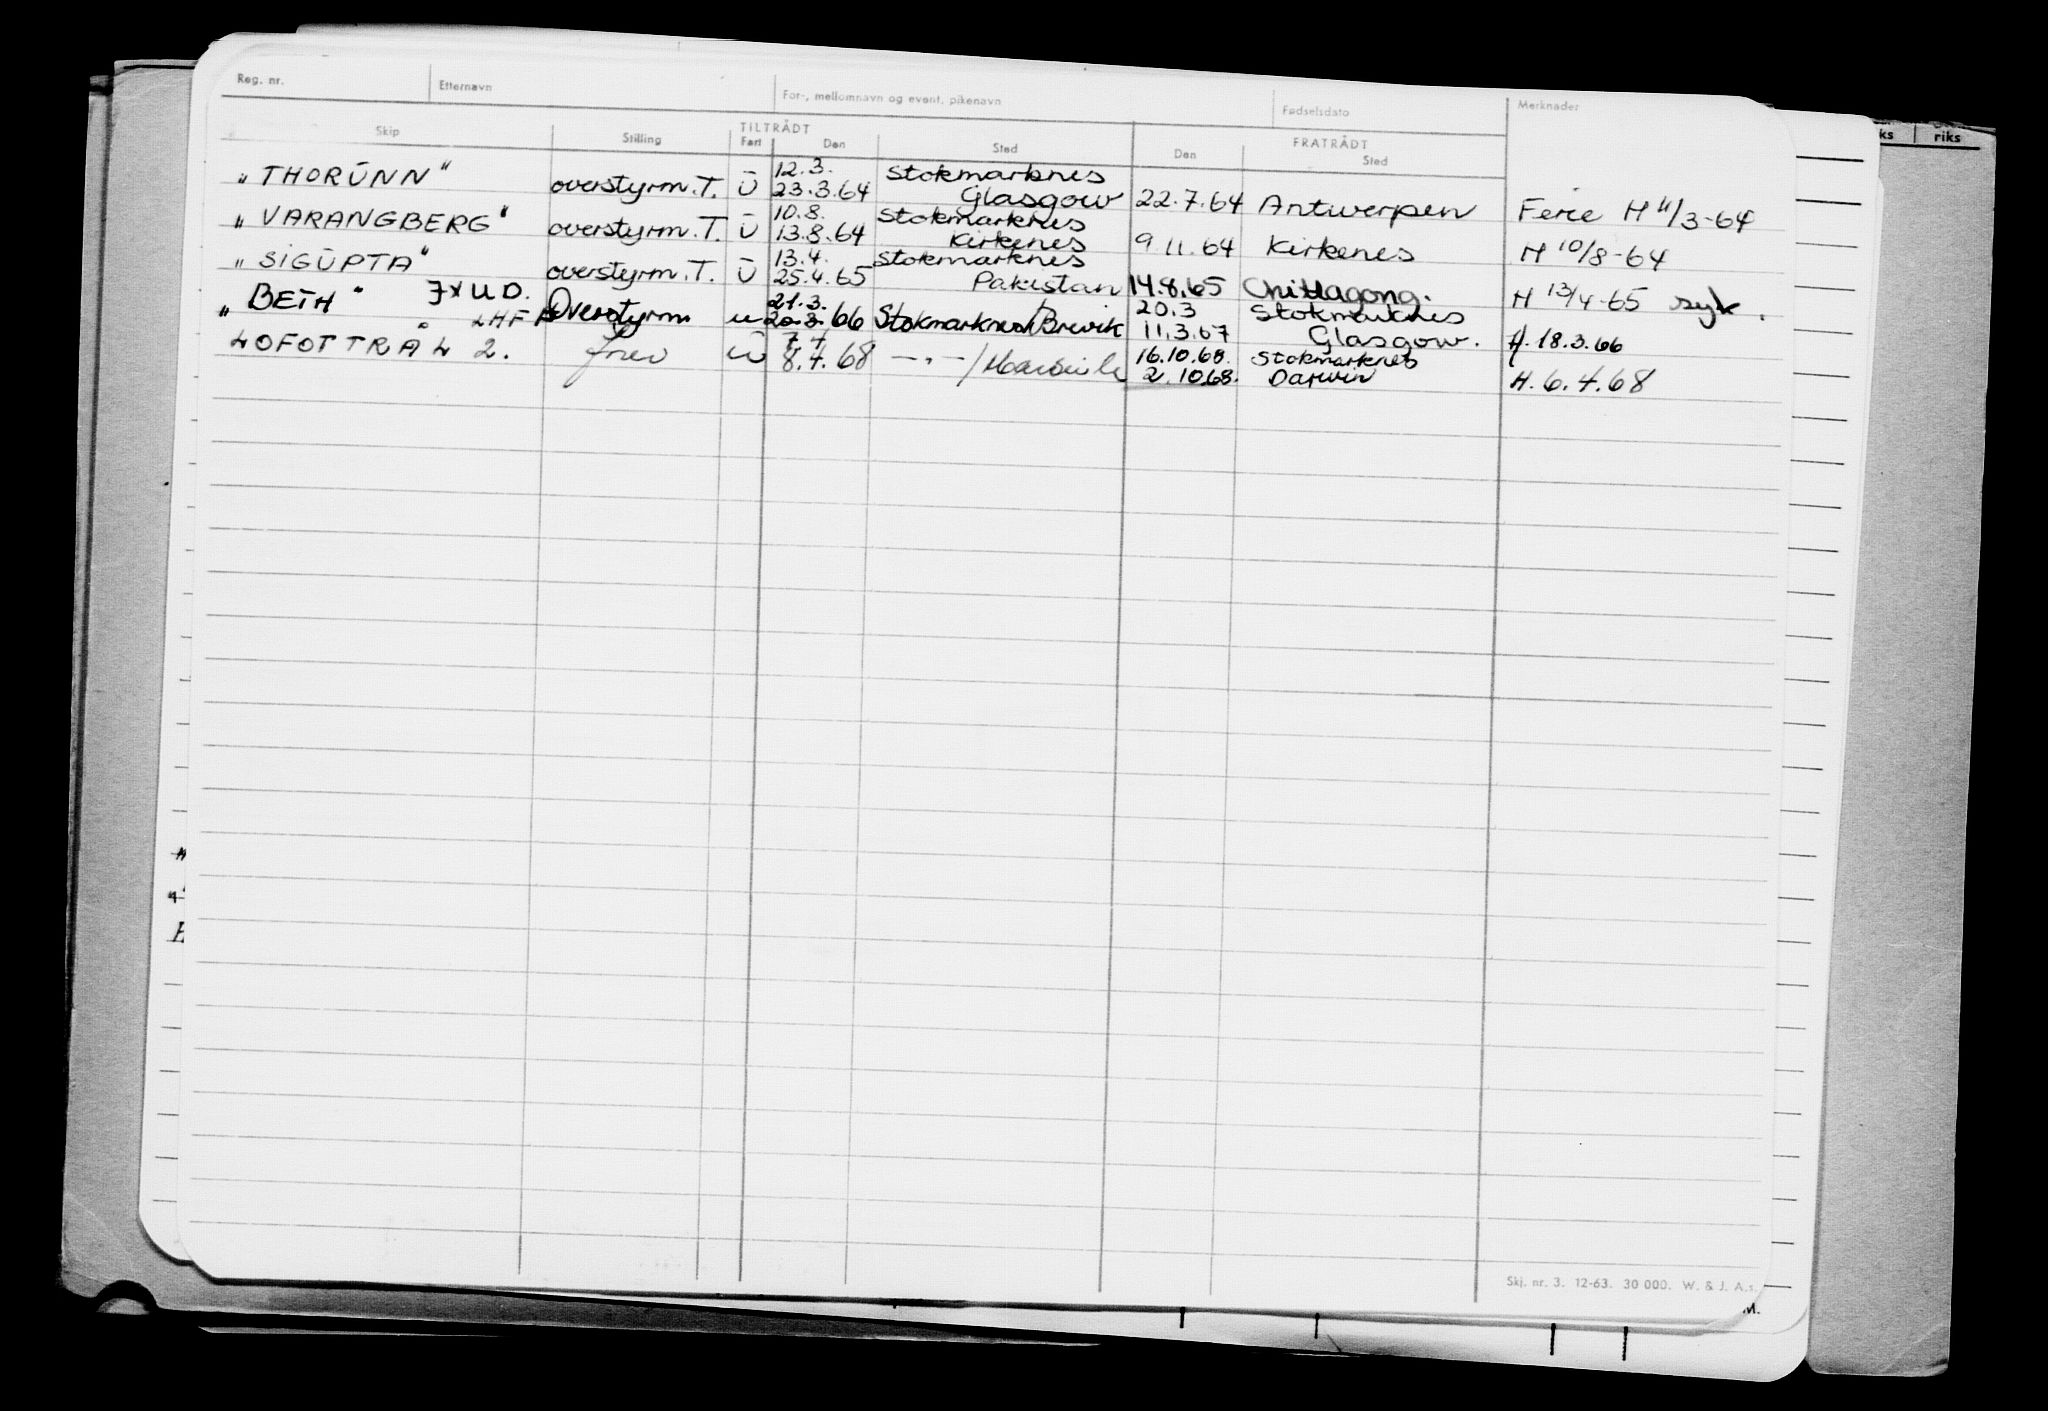 Reg. nr. Etternavn For-, mellomnavn og event. pikenavn Fødselsdato Merknader
Skip Stilling TILTRÅDT Fart Den Sted FRATRÅDT Den Sted
12.3. Stokmarknes
"THORUNN" overstyrm.T. U 23.3.64 Glasgow 22.7.64 Antwerpen Ferie H 11/3-64
10.8. Stokmarknes
"VARANGBERG" overstyrm.T. U 13.8.64 Kirkenes 9.11.64 Kirkenes H 10/8-64
13.4. Stokmarknes
"SIGUPTA" overstyrm.T. U 25.4.65 Pakistan 14.8.65 Chittagong. H 13/4-65 syk.
21.3. 20.3 Stokmarknes
"BETH" JXUD. Overstyrm u 20.3.66 Stokmarknes/Brevik 11.3.67 Glasgow. H.18.3.66
LHFB 7.4 16.10.68. Stokmarknes
LOFOTTRÅL 2. U 8.4.68 -"-/ 2.10.68. Darwin H. 6.4.68
Skj. nr. 3. 12-63. 30 000. W. & J. A.s.
ks riks
M.